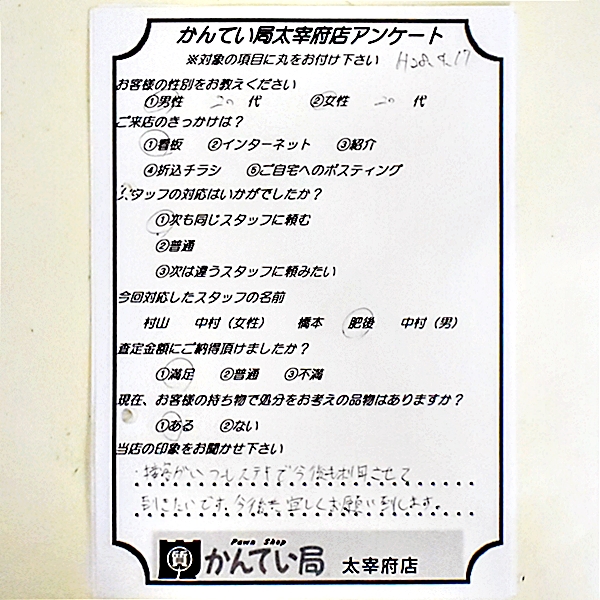 かんてい局太宰府店アンケート
※対象の項目に丸をお付け下さい H28.4.17
お客様の性別をお教えください
①男性 20 代 ②女性 20 代
ご来店のきっかけは？
①看板 ②インターネット ③紹介
④折込チラシ ⑤ご自宅へのポスティング
スタッフの対応はいかがでしたか？
①次も同じスタッフに頼む
②普通
③次は違うスタッフに頼みたい
今回対応したスタッフの名前
村山 中村（女性） 橋本 肥後 中村（男）
査定金額にご納得頂けましたか？
①満足 ②普通 ③不満
現在、お客様の持ち物で処分をお考えの品物はありますか？
①ある ②ない
当店の印象をお聞かせ下さい
ステキで今後も利用させて
いです。今後共宜しくお願い致します。
質 Pawn Shop
かんてい局 太宰府店